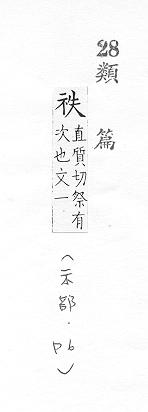 28類篇
祑直質切祭有
次也文一
(示部·P6)